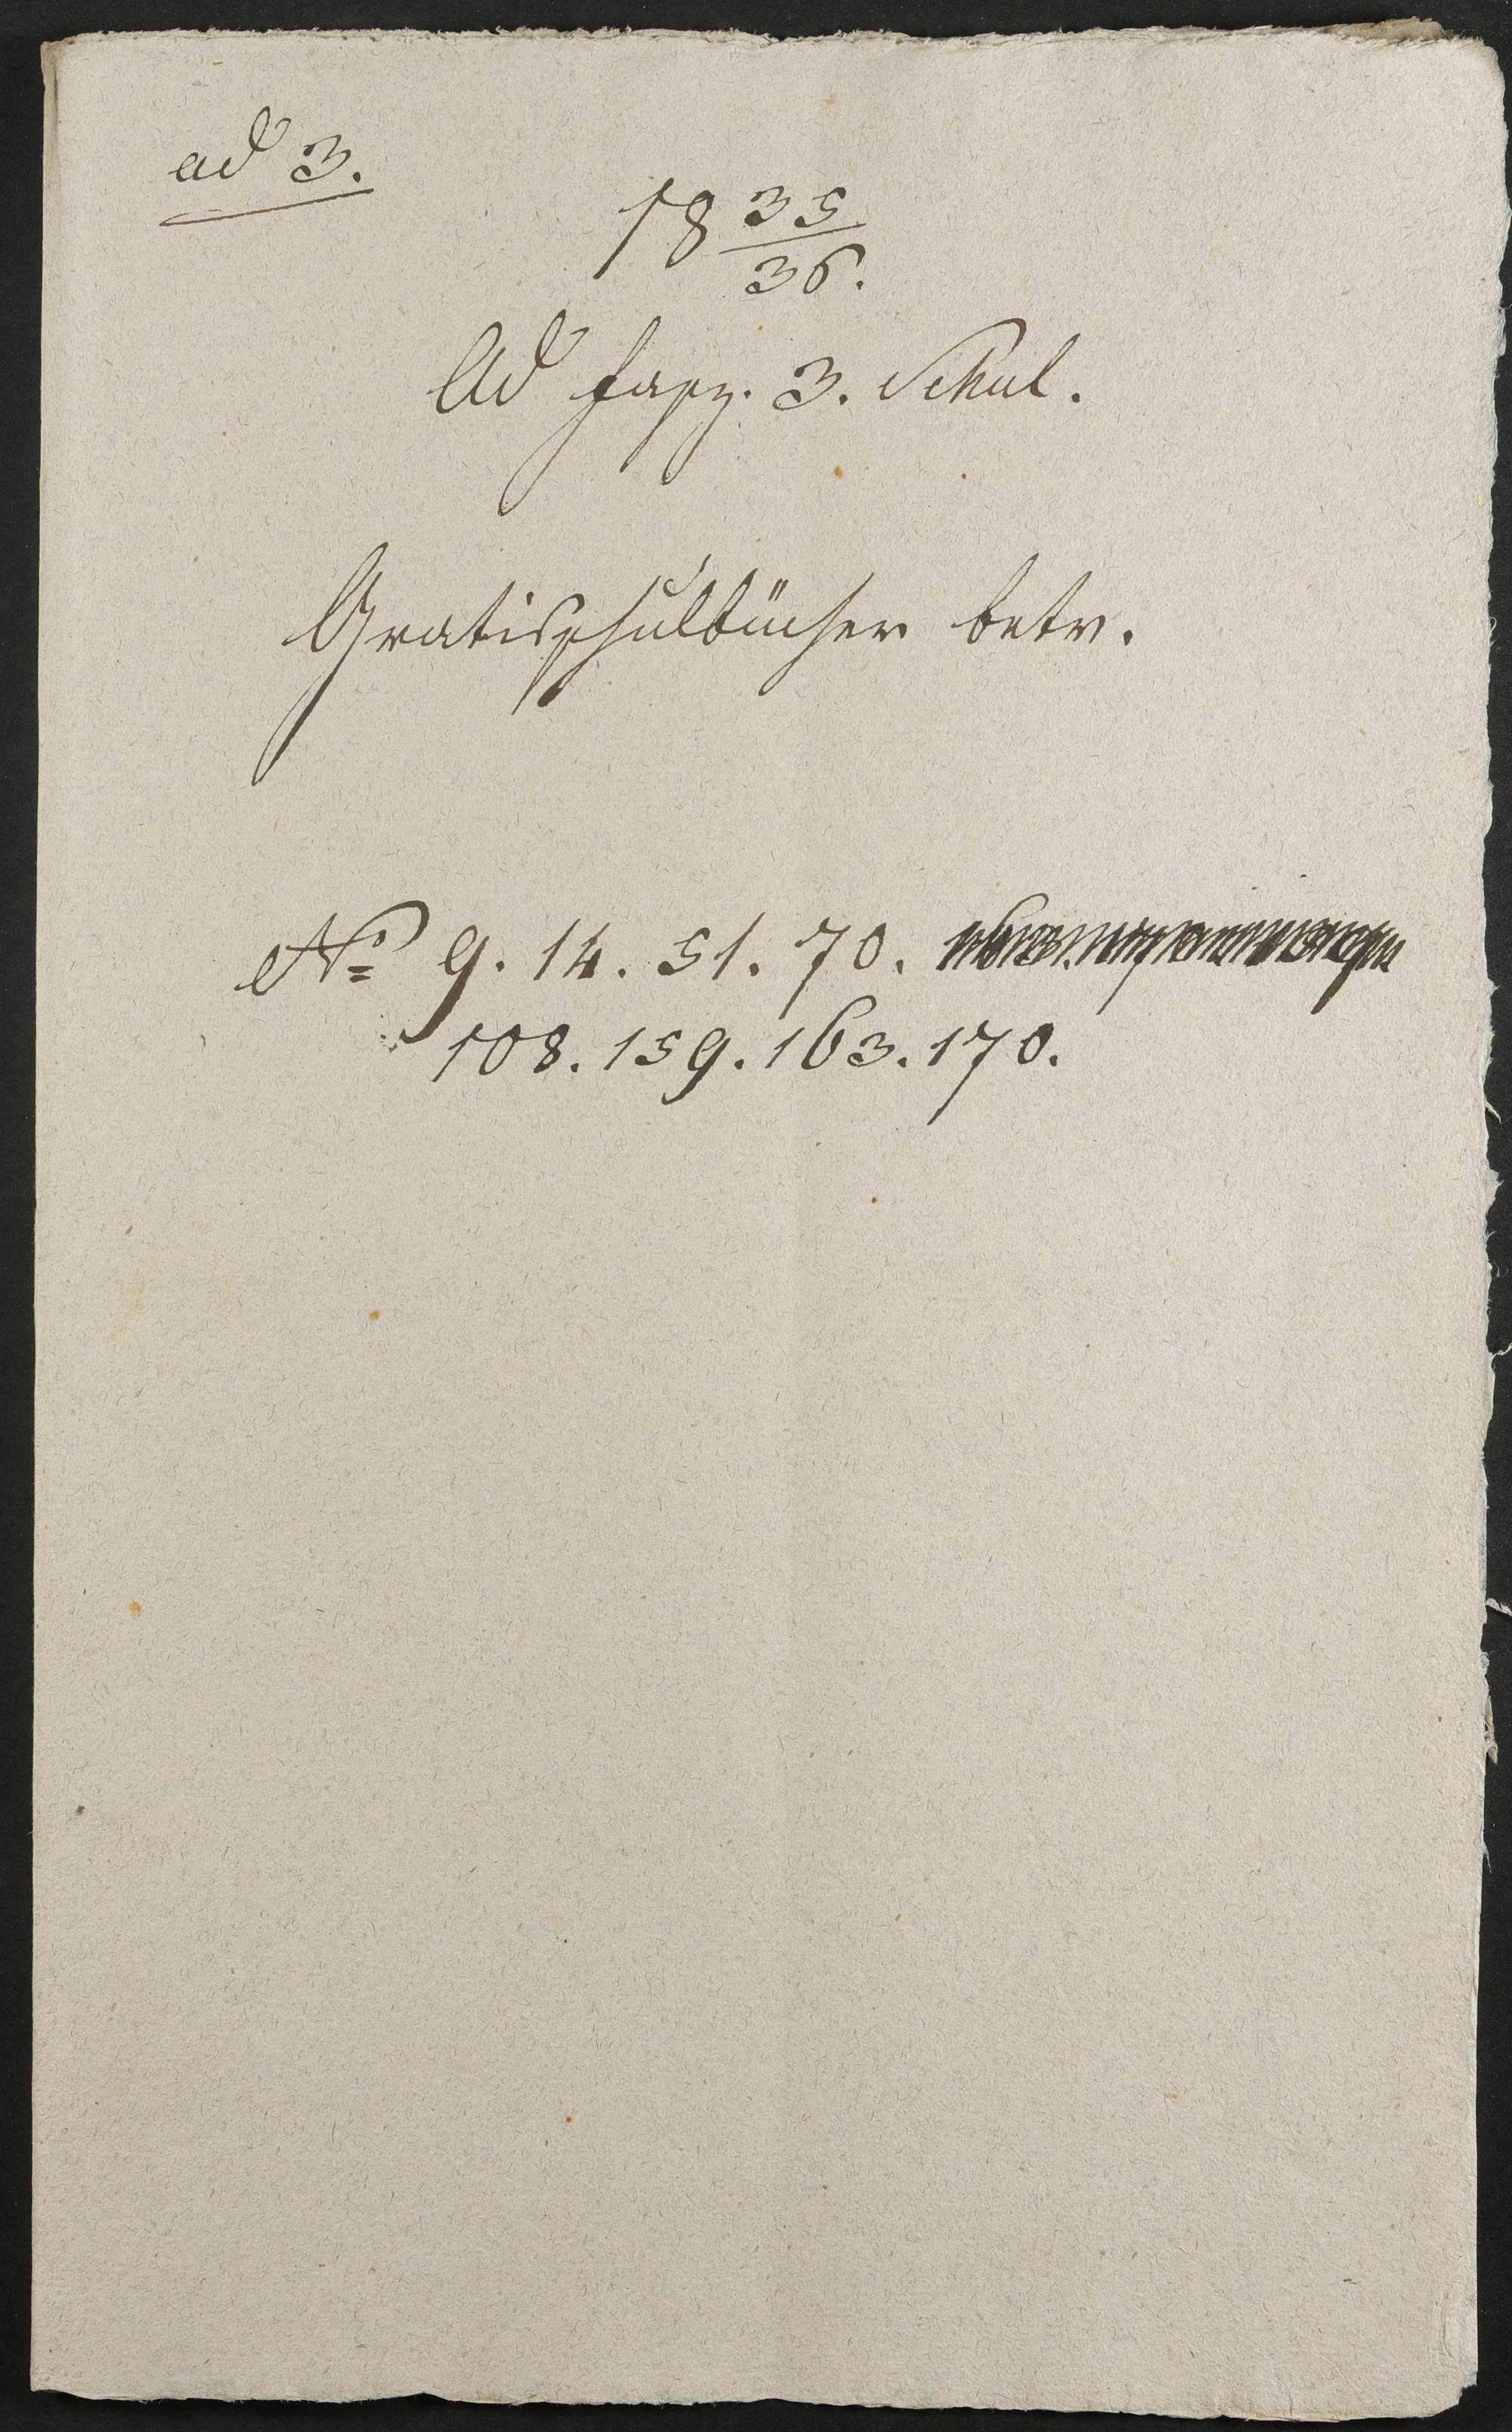 ad 3.
18 35/36.
Ad fasz. 3. Schul.
Gratisschulbücher betr.
No 9. 14. 51. 70.
108. 159. 163. 170.